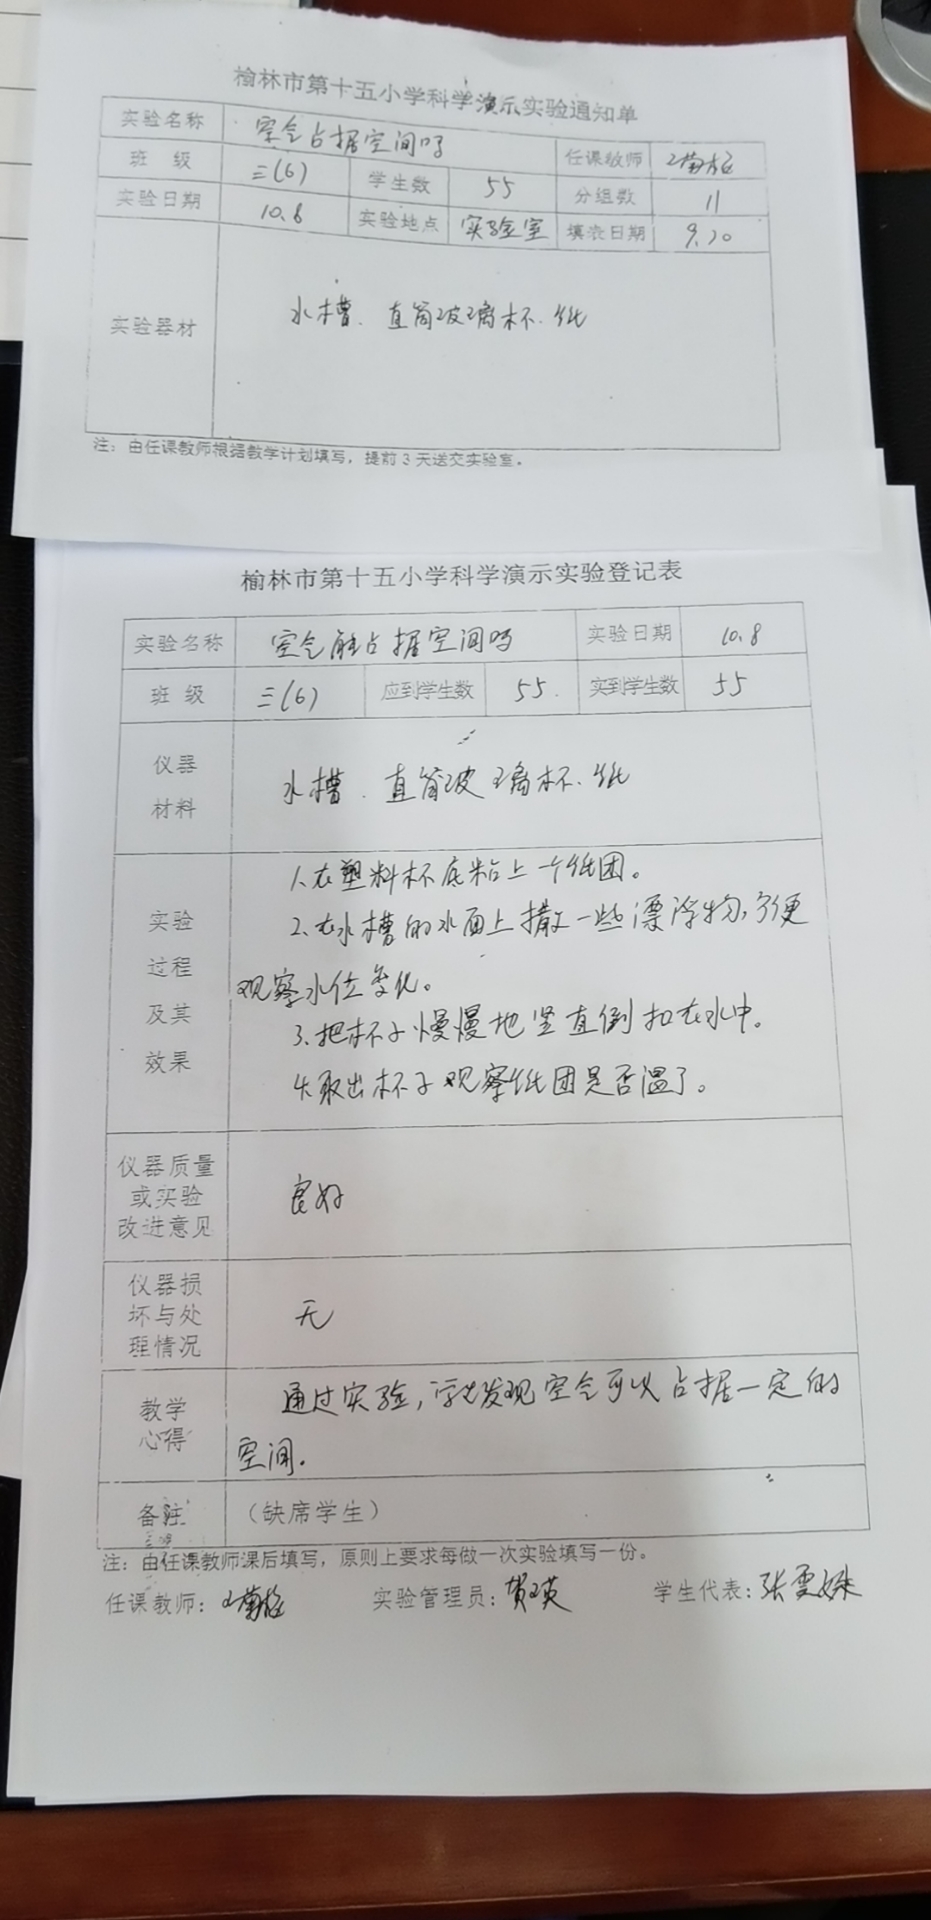 榆林市第十五小学科学演示实验通知单
实验名称 空气占据空间吗 任课教师
班 级 三(6) 学生数 55 分组数 11
实验日期 10.8 实验地点 实验室 填表日期 9.20
实验器材 水槽.直筒玻璃杯.纸
注:由任课教师根据教学计划填写,提前3天送交实验室。
榆林市第十五小学科学演示实验登记表
实验名称 空气能占据空间吗 实验日期 10.8
班 级 三(6) 应到学生数 55. 实到学生数 55
仪器
材料
水槽.直筒玻璃杯.纸
实验
过程
及其
效果
1.在塑料杯底粘上一个纸团。
2.在水槽的水面上撒一些漂浮物,方便
观察水位变化。
3.把杯子慢慢地竖直倒扣在水中。
4.取出杯子观察纸团是否湿了。
仪器质量
或实验
改进意见
良好
仪器损
坏与处
理情况
无
教学
心得
通过实验,学生发现空气可以占据一定的
空间.
备注 (缺席学生)
注:由任课教师课后填写,原则上要求每做一次实验填写一份。
任课教师: 实验管理员:贺瑛 学生代表:张雯姝